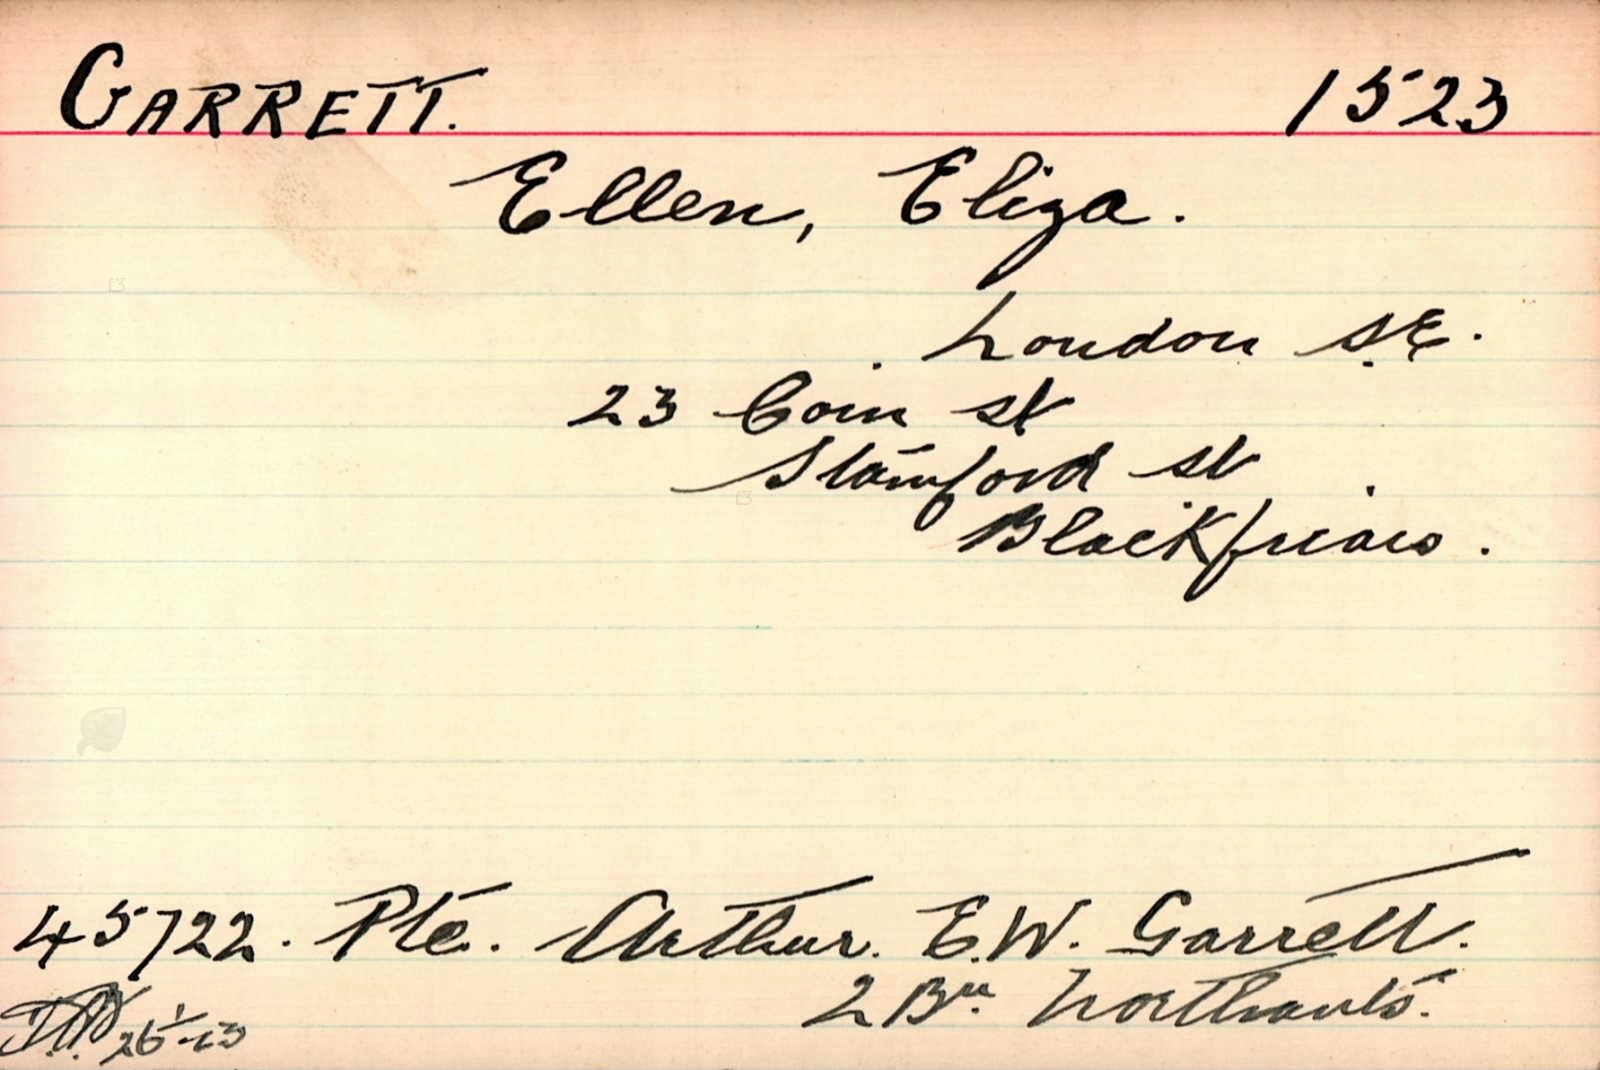 GARRETT. 1523
Ellen, Eliza.
London S.E.
23 Coin St
Stamford St
Blackfriars.
45722. Pte. Arthur. E.W. Garrett.
2 Bn. Northants.